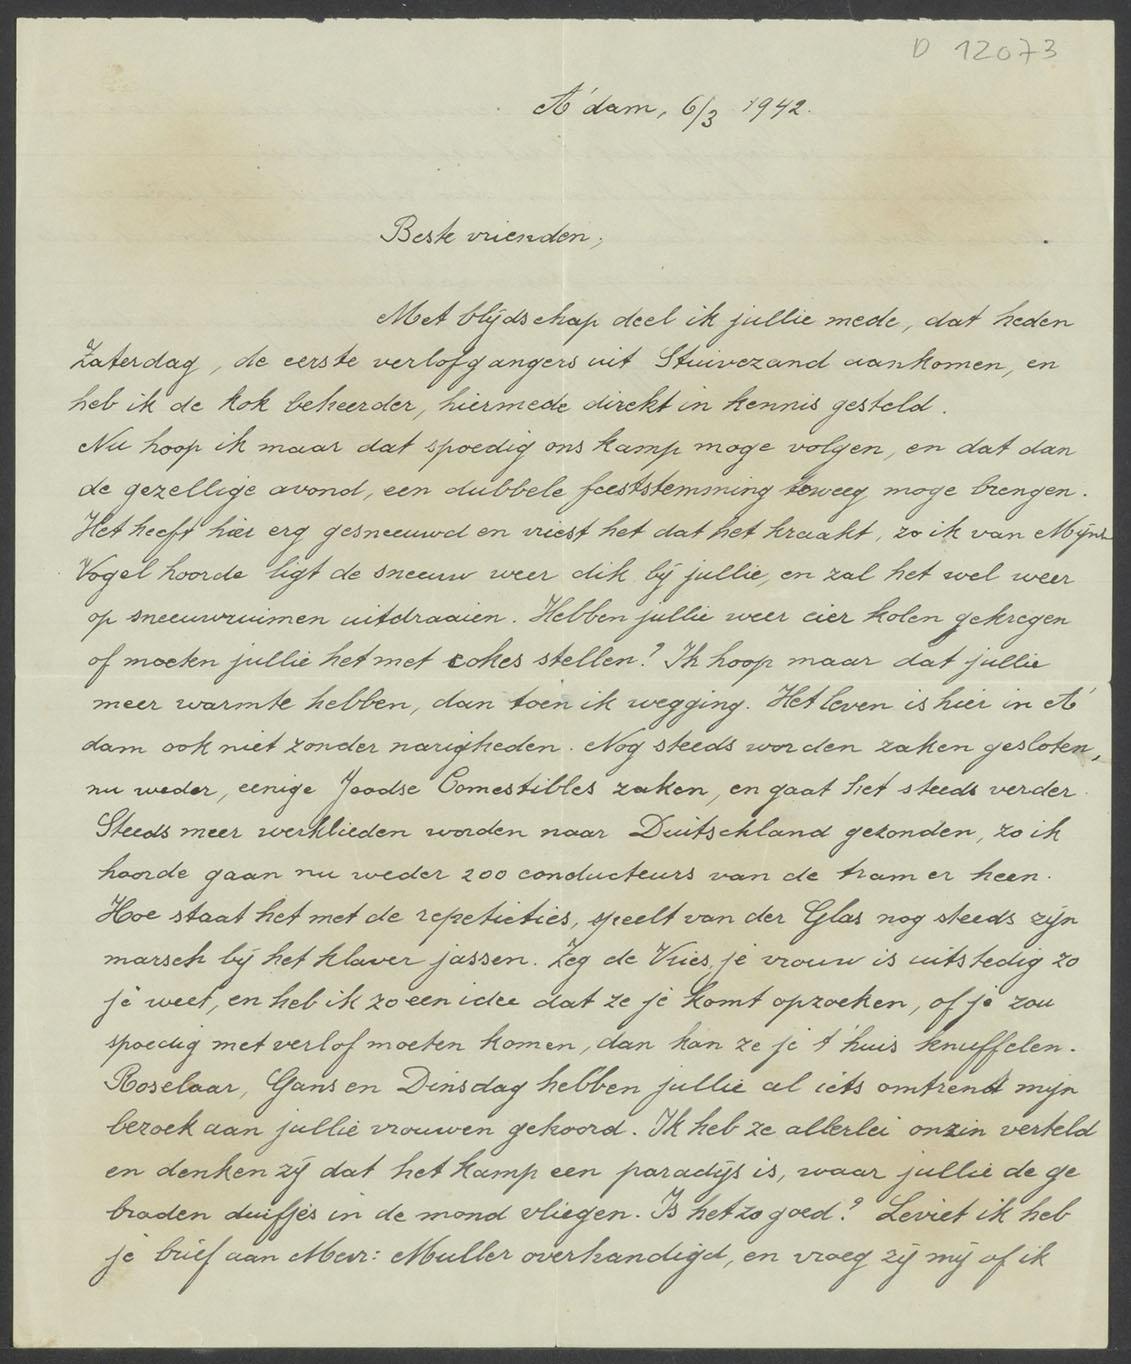 D 12073
A'dam, 6/3 1942.
Beste vrienden,
Met blijdschap deel ik jullie mede, dat heden
Zaterdag, de eerste verlofgangers uit Stuivezand aankomen, en
heb ik de kok beheerder, hiermede direkt in kennis gesteld.
Nu hoop ik maar dat spoedig ons kamp moge volgen, en dat dan
de gezellige avond, een dubbele feeststemming teweeg moge brengen.
Het heeft hier erg gesneeuwd en vriest het dat het kraakt, zo ik van Mijnh
Vogel hoorde ligt de sneeuw weer dik bij jullie, en zal het wel weer
op sneeuwruimen uitdraaien. Hebben jullie weer eier kolen gekregen
of moeten jullie het met cokes stellen? Ik hoop maar dat jullie
meer warmte hebben, dan toen ik wegging. Het leven is hier in A'
dam ook niet zonder narigheden. Nog steeds worden zaken gesloten,
nu weder, eenige Joodse Comestibles zaken, en gaat het steeds verder.
Steeds meer werklieden worden naar Duitschland gezonden, zo ik
hoorde gaan nu weder 200 conducteurs van de tram er heen.
Hoe staat het met de repetieties, speelt van der Glas nog steeds zijn
marsch bij het klaver jassen. Zeg de Vries, je vrouw is uitstedig zo
je weet, en heb ik zo een idee dat ze je komt opzoeken, of je zou
spoedig met verlof moeten komen, dan kan ze je t'huis knuffelen.
Roselaar, Gans en Dinsdag hebben jullie al iets omtrent mijn
bezoek aan jullie vrouwen gehoord. Ik heb ze allerlei onzin verteld
en denken zij dat het kamp een paradijs is, waar jullie de ge
braden duifjes in de mond vliegen. Is het zo goed? Leviet ik heb
je brief aan Mevr: Muller overhandigd, en vroeg zij mij of ik